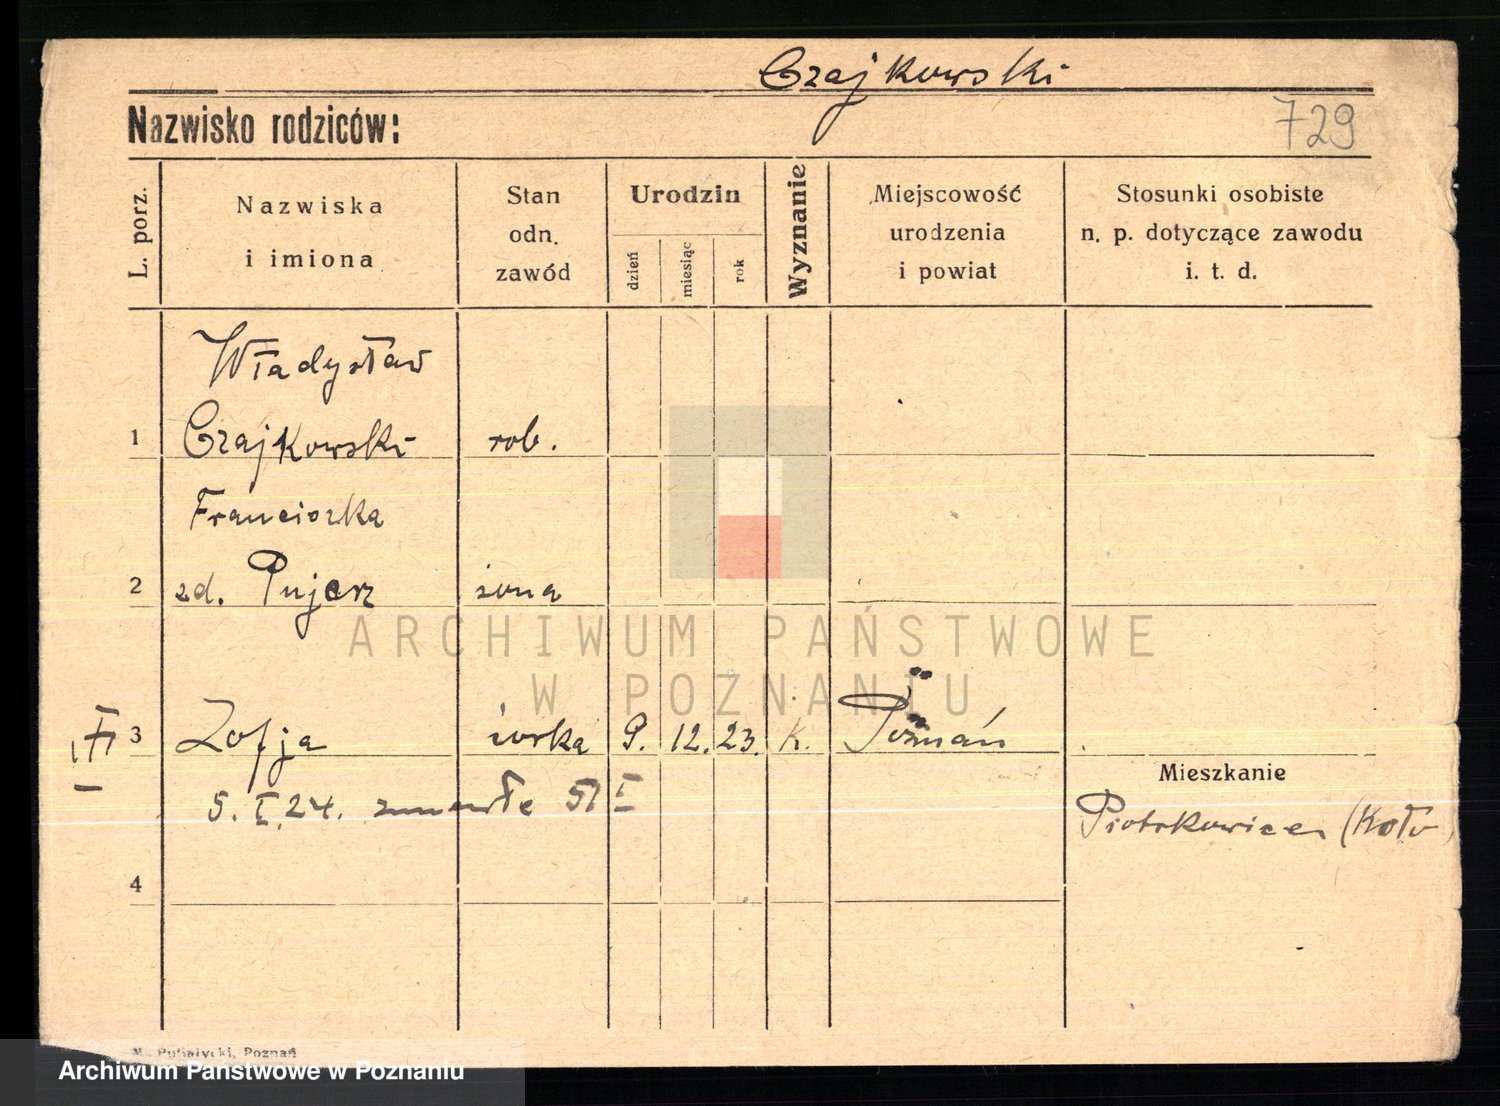 Czajkowski
Nazwisko rodziców:
729
L. porz.
Nazwiska
i imiona
Stan
odn.
zawód
Urodzin
dzień
miesiąc
rok
Wyznanie
Miejscowość
urodzenia
i powiat
Stosunki osobiste
n. p. dotyczące zawodu
i. t. d.
Władysław
1 Czajkowski rob.
Franciszka
2 zd. żona
ARCHIWUM PAŃSTWOWE
W POZNANIU
3 Zofja córka 9. 12. 23. K. Poznań
5. I. 24. zmarła
Mieszkanie
Piotrkowice (Koło
4
Poznań
Archiwum Państwowe w Poznaniu